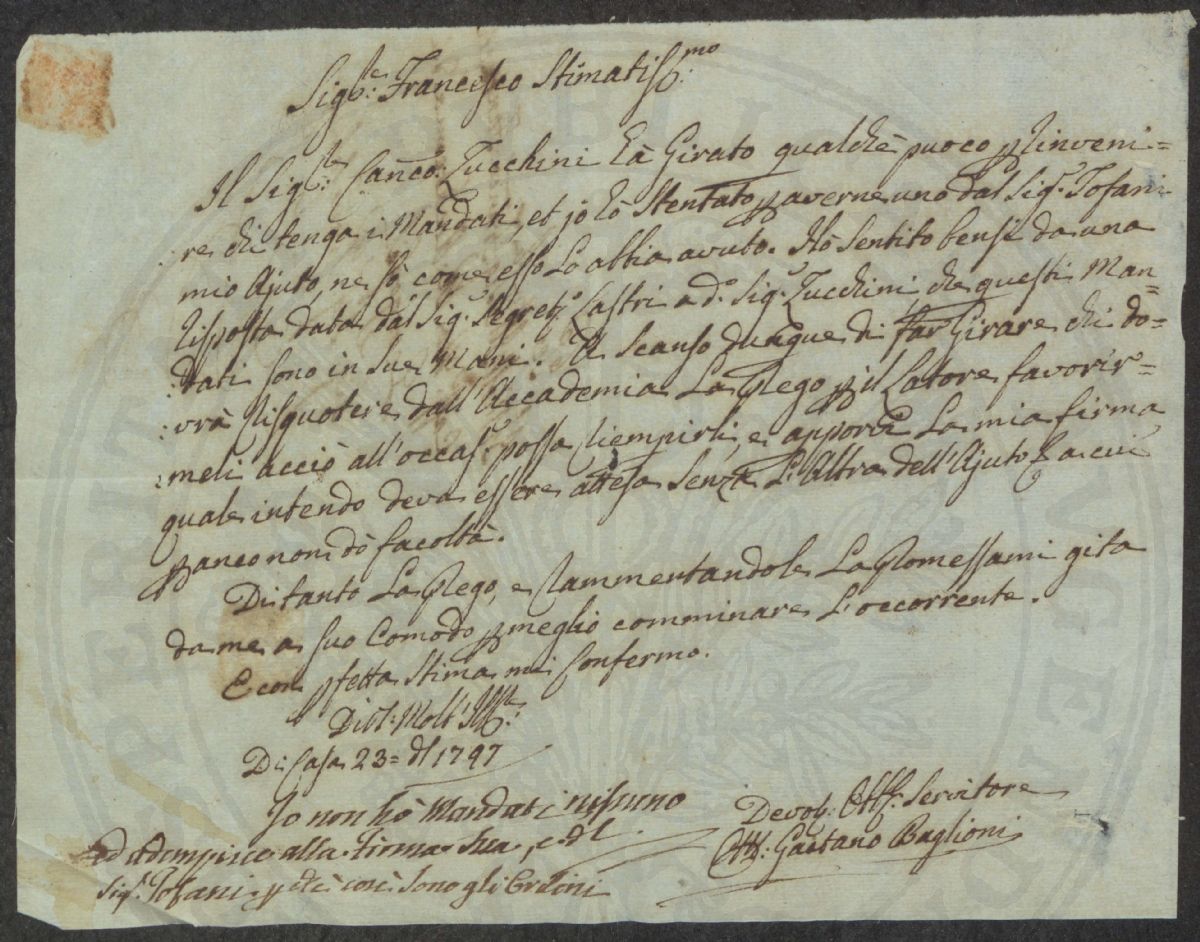 Sig.re Francesco Stimatiss.mo
Il Sig.re Can.co Zucchini hà Girato qualchè puoco p rinveni=
re chi tenga i Mandati, et jo hò Stentato p averne uno dal Sig.r Tofani
mio Ajuto, ne sò come esso Lo abbia avuto. Hò Sentito bensì da una
risposta data dal Sig.r Segret.o Lastri a d.o Sig.r Zucchini che questi Man=
dati sono in Sue Mani. A Scanso dunque di far Girare chi do=
vrà risquotere dall'Accademia La Prego p il Latore favorir=
meli acciò all'occas.e possa riempirli, e apporvi La mia firma
quale intendo deva essere attesa Senza L'Altra dell'Ajuto a cui
p anco non dò facoltà.
Di tanto La Prego, e rammentandole La Promessami gita
da me a Suo Comodo p meglio comminare L'occorrente.
E con pfetta Stima mi Confermo.
Di V.S. Molt'Ill.re
Di Casa 23= 1797
Devot.: Obb.: Servitore
Gaetano Baglioni
Jo non hò Mandati nissuno
ed adempisce alla firma Sua, e del
Sig.r Tofani p chè così Sono gli Ordini